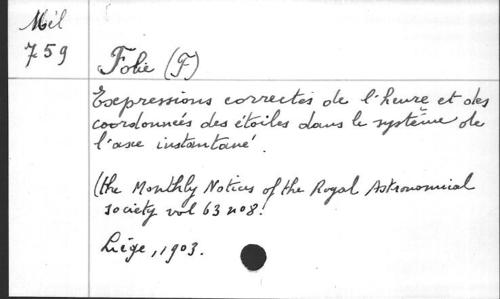 Mél
759
Folie (F)
Expressions correctes de l'heure et des
coordonnées des étoiles dans le système de
l'axe instantané.
(the Monthly Notices of the Royal Astronomical
society vol 63 no 8.
Liége, 1903.